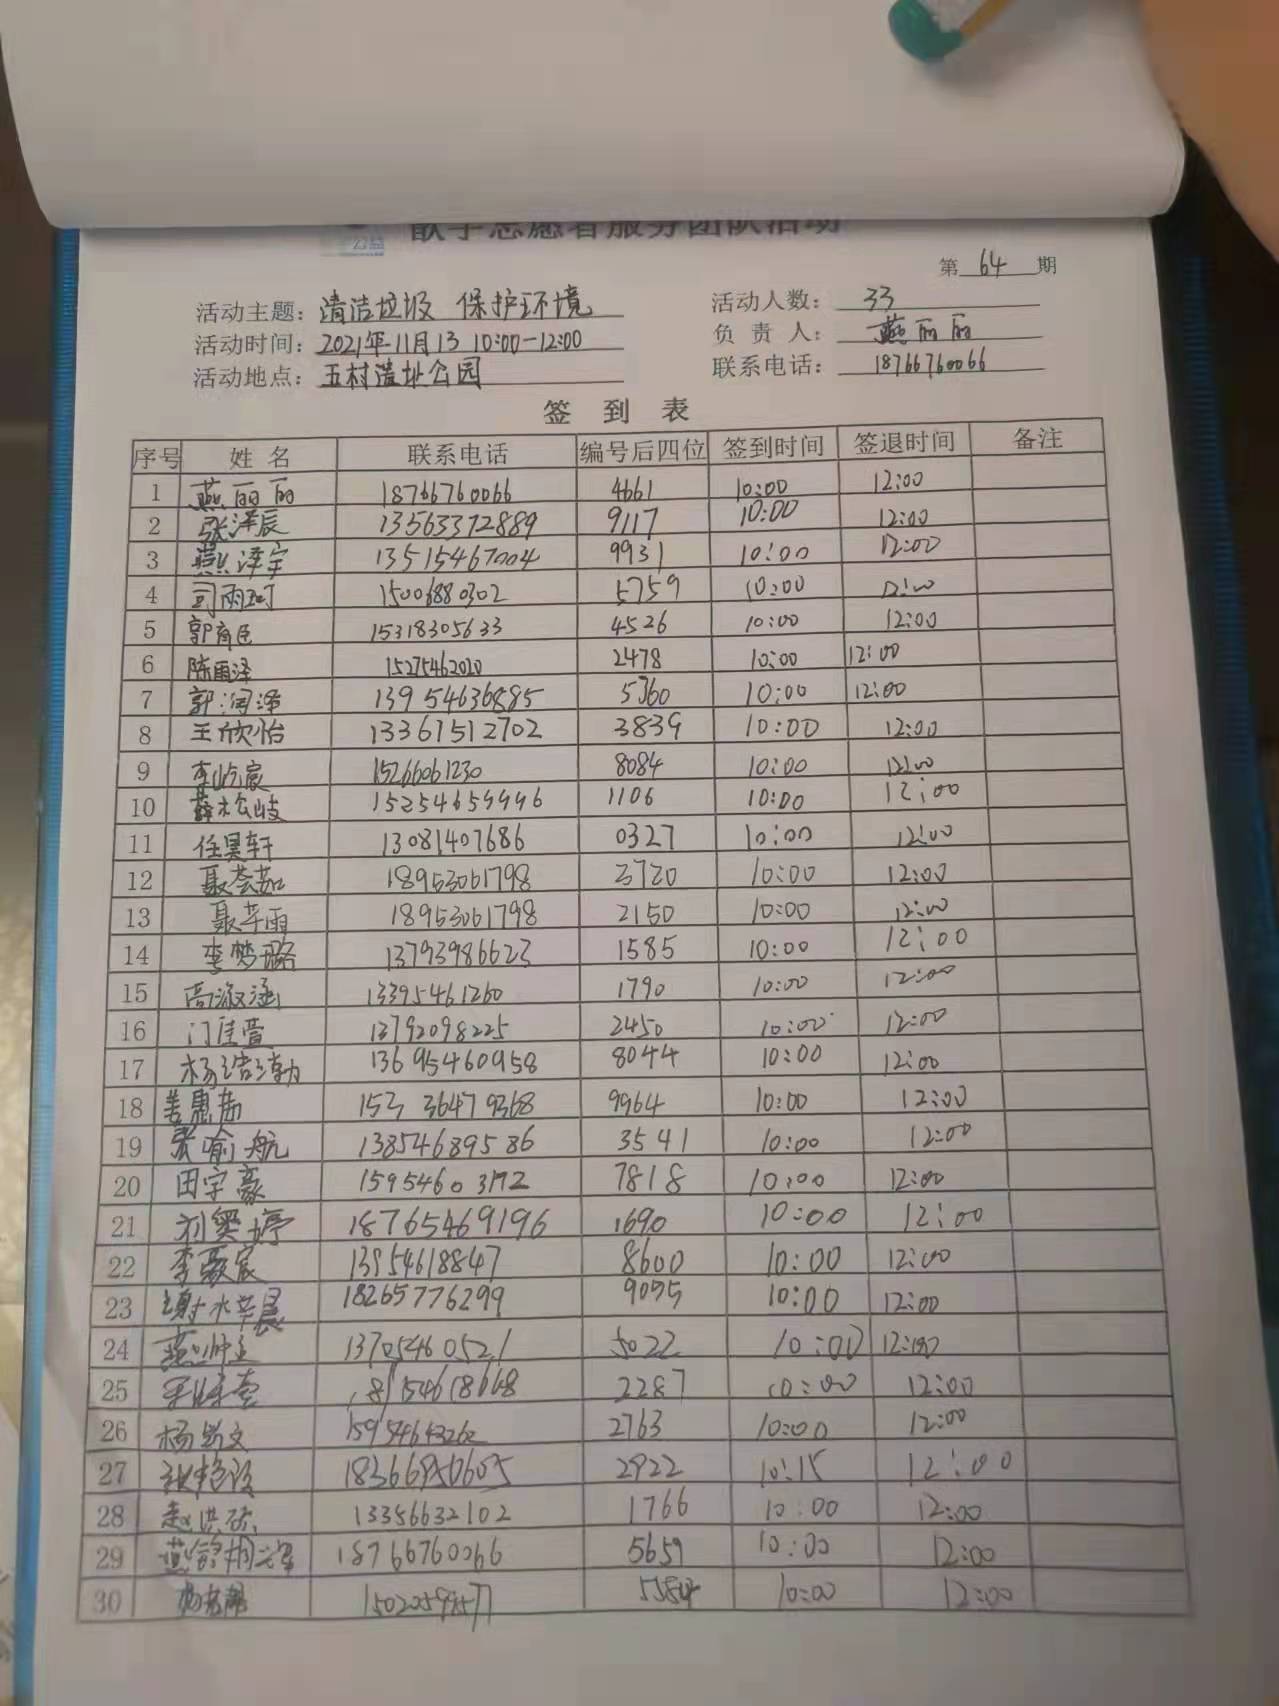 公益
志愿者服务团队活动
第 64 期
活动主题: 清洁垃圾 保护环境 活动人数: 33
活动时间: 2021年11月13 10:00-12:00 负 责 人: 燕丽丽
活动地点: 五村遗址公园 联系电话: 18766760066
签 到 表
序号 姓 名 联系电话 编号后四位 签到时间 签退时间 备注
1 燕丽丽 18766760066 4661 10:00 12:00
2 张泽辰 13563372889 9117 10:00 12:00
3 燕泽宇 13515467004 9931 10:00 12:00
4 司雨珂 15006880302 5759 10:00 12:00
5 15318305633 4526 10:00 12:00
6 陈雨泽 15275462020 2478 10:00 12:00
7 郭润泽 13954636885 5360 10:00 12:00
8 王欣怡 13361512702 3839 10:00 12:00
9 李屹宸 15266061230 8084 10:00 12:00
10 薛松岐 15254659996 1106 10:00 12:00
11 任昊轩 13081407686 0327 10:00 12:00
12 聂荟茹 18953061798 3720 10:00 12:00
13 聂芊雨 18953061798 2150 10:00 12:00
14 李梦璐 13793986623 1585 10:00 12:00
15 高淑涵 13395461260 1790 10:00 12:00
16 门佳萱 13792098225 2450 10:00 12:00
17 杨浩渤 13695460958 8044 10:00 12:00
18 姜惠茹 153 36479368 9964 10:00 12:00
19 张喻航 13854689586 3541 10:00 12:00
20 田宇豪 15954603172 7818 10:00 12:00
21 刘奕婷 18765469196 1690 10:00 12:00
22 李宸 13954618847 8600 10:00 12:00
23 谢水芊晨 18265776299 9095 10:00 12:00
24 燕帅 13705460521 5022 10:00 12:00
25 2287 10:00 12:00
26 杨文 2763 10:00 12:00
27 18366950605 2922 10:15 12:00
28 赵洪 13356632102 1766 10:00 12:00
29 燕 18766760066 5659 10:00 12:00
30 10:00 12:00